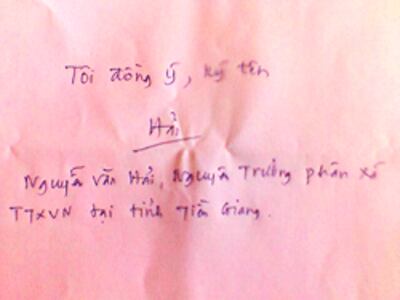 Tôi đồng ý, ký tên
Hải
Nguyễn Văn Hải, Nguyên Trưởng phân xã
TTXVN tại tỉnh Tiền Giang.